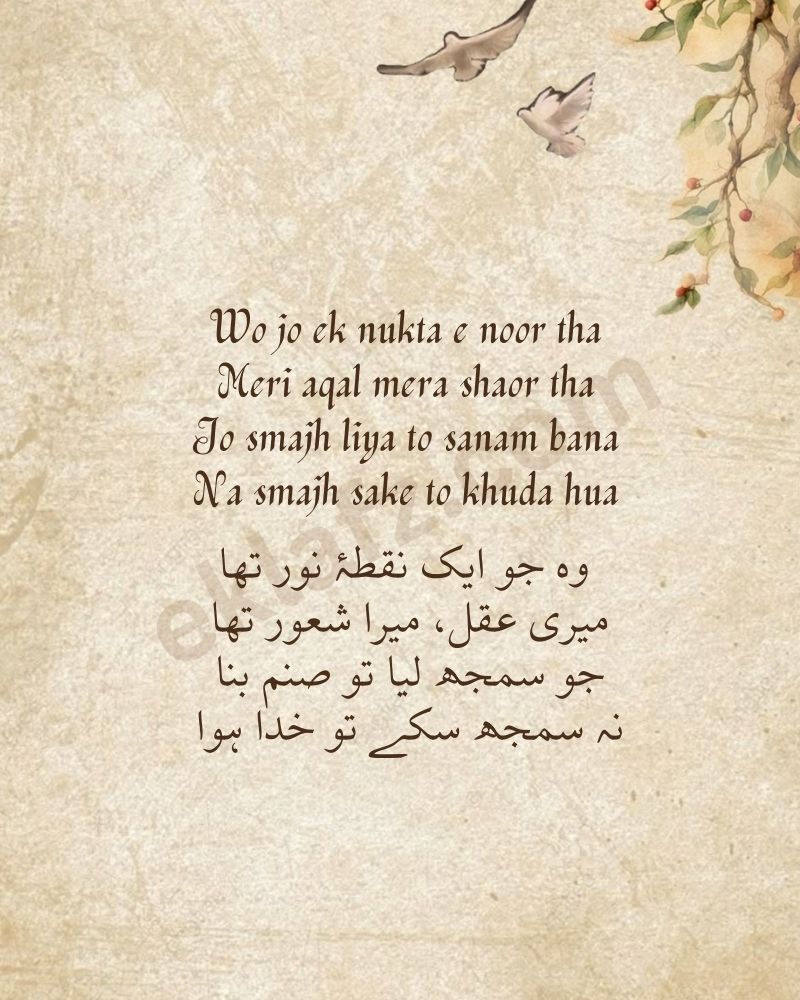 Wo jo ek nukta e noor tha
Meri aqal mera shaor tha
Jo smajh liya to sanam bana
Na smajh sake to khuda hua
وہ جو ایک نقطۂ نور تھا
میری عقل، میرا شعور تھا
جو سمجھ لیا تو صنم بنا
نہ سمجھ سکے تو خدا ہوا